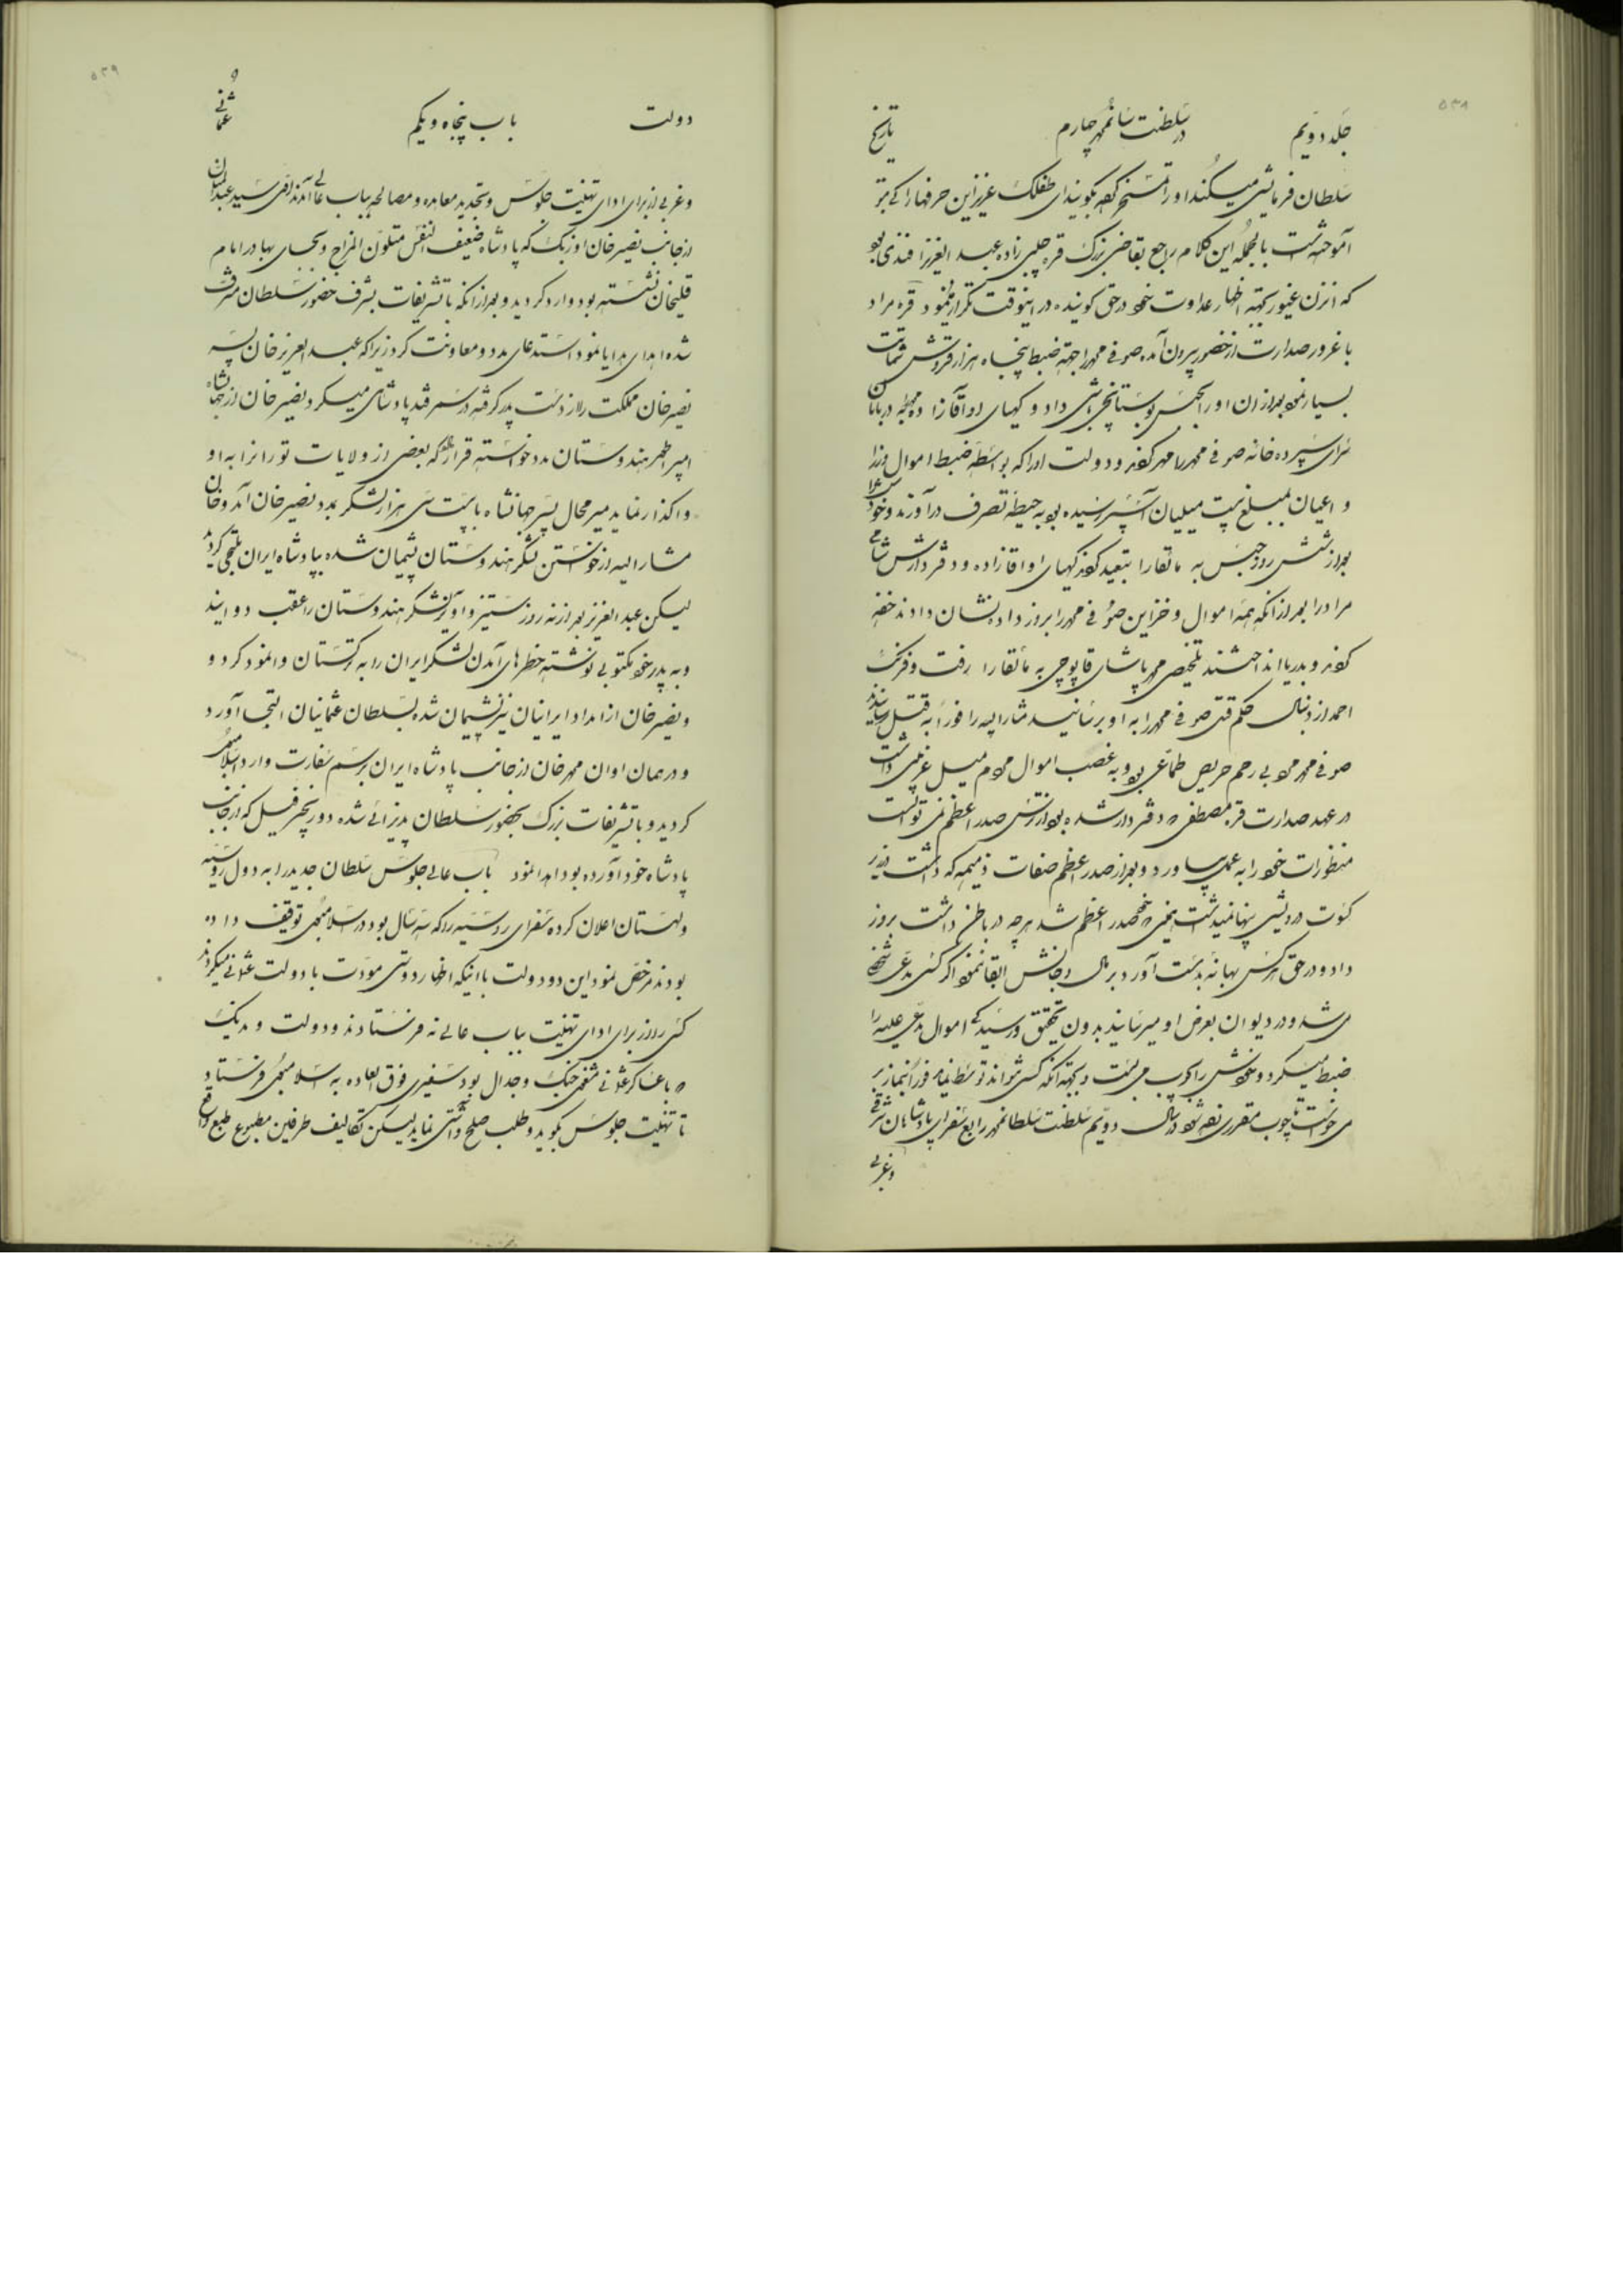 ۵۳۸
جلد دویم در سلطنت سلطان محمد چهارم تاریخ
سلطان فرمایشی میکند او را تمسخر کرده بگویند ای طفلک عزیز این حرفها را که بتو
آموخته است بالجمله این کلام راجع بقاضی بزرگ قره چلبی زاده عبد العزیز افندی بود
که انزن غیور بجهته اظهار عداوت خود در حق گوینده در اینوقت تکرار نمود قره مراد
با غرور صدارت از حضور بیرون آمده صوفی محمد را جهته ضبط پنجاه هزار قروش شماتت
بسیار نمود بعد از ان او را بحبس بوستانجی باشی داد و کهیای او آقازاده
سرای سپرده خانه صوفی محمد را مهر کردند و دولت او را که بواسطه ضبط اموال وزرا
و اعیان بمبلغ بیست میلیان آسپر رسیده بود به حیطه تصرف در آوردند و خود
بعد از شش روز حبس به مالقارا تبعید کردند کهیای او اقازاده و دفتردارش
مرادرا بعد از آنکه همه اموال و خزاین صوفی محمد را بروز داده نشان دادند خفه
کردند و بدریا انداختند تلخیصی محمد پاشای قاپوچی به مالقارا رفت و فرنک
احمد از دنبال حکم قتل صوفی محمد را به او برسانید مشارالیه را فوراً به قتل رسانیدند
صوفی محمد مرد بی رحم حریص طماعی بود به غصب اموال مردم میل غریبی داشت
در عهد صدارت قره مصطفی دفتردار شده بود از ترس صدر اعظم نمی توانست
منظورات خود را به عمل بیاورد و بعد از صدر اعظم صفات ذمیمه که داشت در زیر
کسوت درویشی پنهان میداشت همینکه خود صدر اعظم شد هر چه در باطن داشت بروز
داد و در حق هر کس بهانه بدست آورد بر مال و جانش ابقا ننمود اگر کسی مدعی شخصی
می شد و در دیوان بعرض او میرسانید بدون تحقیق و رسیدگی اموال مدعی علیه را
ضبط میکرد و خودش را چوب می بست و بجهته آنکه کسی نتواند توسط نماید فوراً بنماز بر
میخواست تا چوب مقرری زده شود در سال دویم سلطنت سلطان محمد رابع سفرای پادشاهان شرقی
و غربی
۵۳۹
دولت باب پنجاه و یکم عثمانی
و غربی از برای ادای تهنیت جلوس و تجدید معاهده و مصالحه بباب عالی آمدند افندی سید عبدالمنان
از جانب نصیر خان اوزبک که پادشاه ضعیف النفس متلون المزاج و بجای بهادر امام
قلیخان نشسته بود وارد گردید و بعد از آنکه با تشریفات بشرف حضور سلطان مشرف
شده اهدای هدایا نمود استدعای مدد و معاونت کرد زیرا که عبد العزیز خان پسر
نصیر خان مملکت را از دست پدر گرفته در سمرقند پادشاهی میکرد و نصیر خان از جهانشاه
امپراطور هندوستان مدد خواسته قرار داد که بعضی از ولایات تورانرا به او
واگذار نماید میر محال پسر جهانشاه با بیست سی هزار لشکر بمدد نصیر خان آمد و خان
مشارالیه از خواستن لشکر هندوستان پشیمان شده بپادشاه ایران ملتجی گردید
لیکن عبد العزیز بعد از نه روز ستیز و آویز لشکر هندوستان را عقب دوانید
و به پدر خود مکتوبی نوشته خطرهای آمدن لشکر ایران را به ترکستان وانمود کرد و
و نصیر خان از امداد ایرانیان نیز پشیمان شده بسلطان عثمانیان التجا آورد
و در همان اوان محمد خان از جانب پادشاه ایران برسم سفارت وارد اسلامبول
گردید و با تشریفات بزرگ بحضور سلطان پذیرائی شده دو زنجیر فیل که از جانب
پادشاه خود آورده بود اهدا نمود باب عالی جلوس سلطان جدید را به دول روسیه
و لهستان اعلان کرده سفرای روسیه را که سه سال بود در اسلامبول توقیف داده
بودند مرخص نمود این دو دولت با اینکه اظهار دوستی و مودت با دولت عثمانی میکردند
کسی را از برای ادای تهنیت بباب عالی نه فرستادند و دولت وندیک
که با عساکر عثمانی مشغول جنگ و جدال بود سفیری فوق العاده به اسلامبول فرستاد
تا تهنیت جلوس بگوید و طلب صلح و آشتی نماید لیکن تکالیف طرفین مطبوع طبع واقع